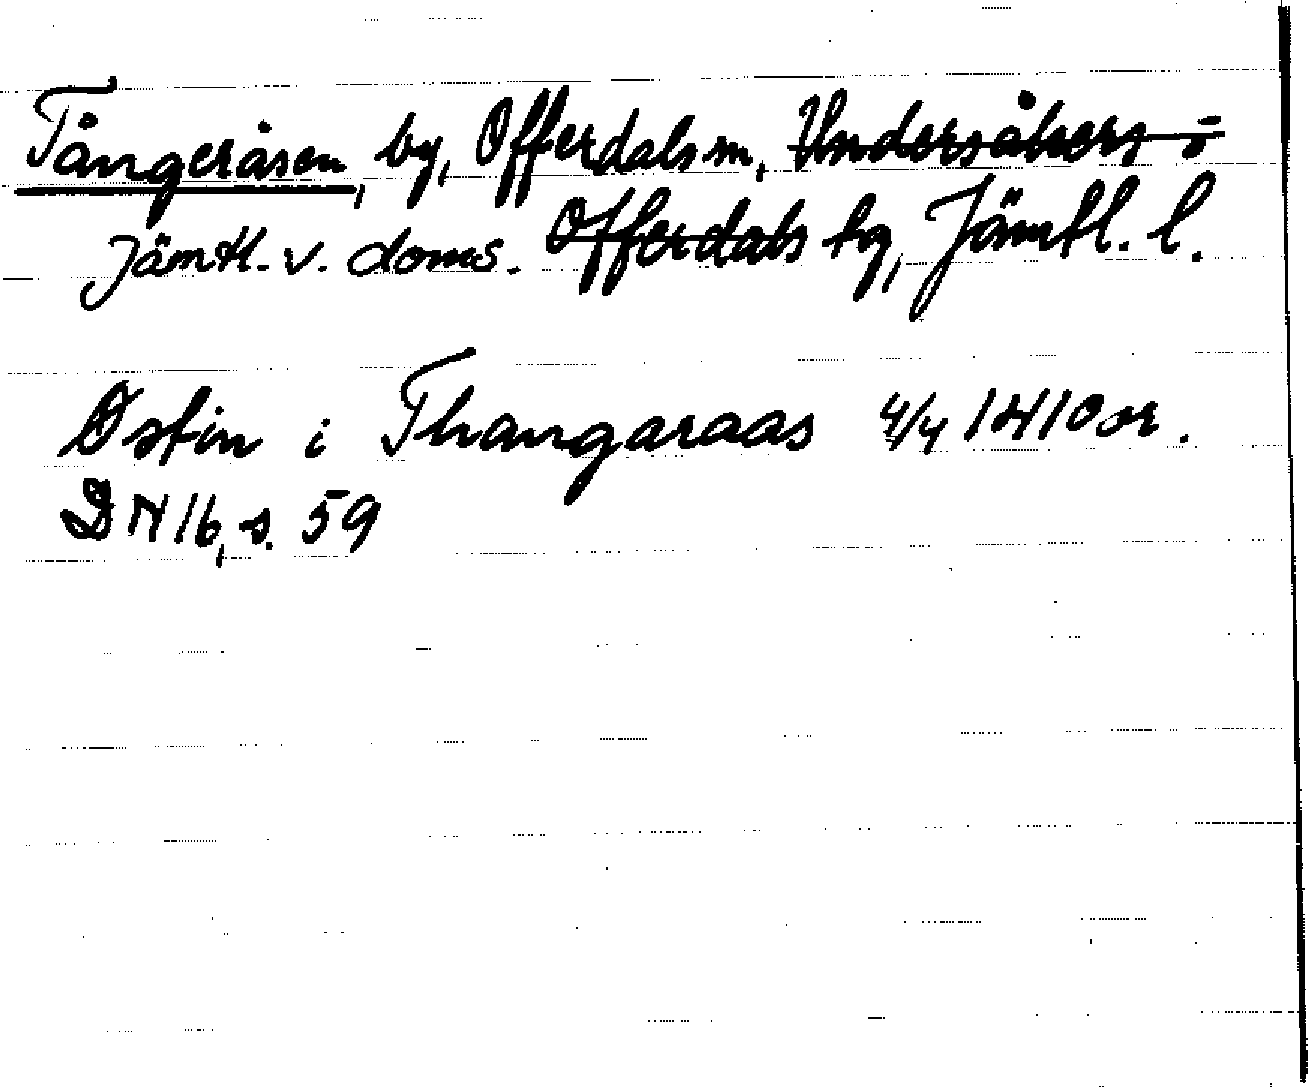 Tångeråsen, by, Offerdals sn, Undersåkers o
Jämtl. v. doms. Offerdals hg, Jämtl. l.
Østin i Thangaraas 4/4 1410 or.
DN 16, s. 59